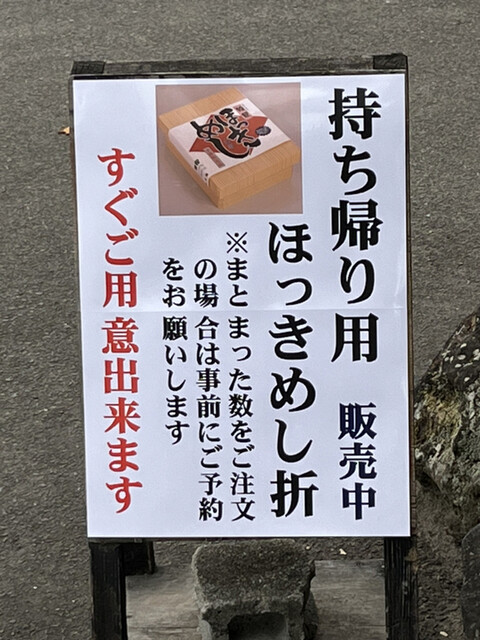 持ち帰り用 販売中
ほっきめし折
※まとまった数をご注文
の場合は事前にご予約
をお願いします
すぐご用意出来ます
ほっき
めし